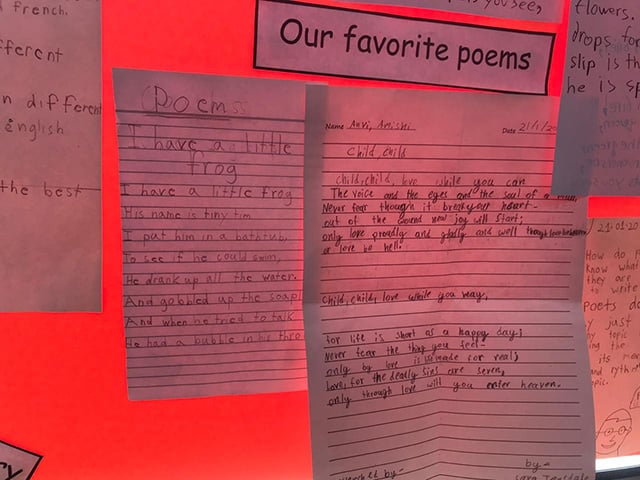 you see,
Our favorite poems
French.
fferent
n different
english
the best
Poems
I have a little
frog
I have a little frog
His name is tiny tim
I put him in a bathtub,
To see if he could swim,
He drank up all the water.
And gobbled up the soap!
And when he tried to talk
He had a bubble in his thro
Name Anvi, Anishi
Date 21/1/20
Child, Child
Child, child, love while you can
The voice and the eyes and the soul of a man,
Never fear though it break your heart-
out of the wound new joy will start;
only love proudly and gladly and well though love be heaven
or love be hell.
Child, child, love while you may,
for life is short as a happy day;
Never fear the thing you feel-
only by love is life made for real;
Love, for the deadly sins are seven,
only through love will you enter heaven.
by-
Sara Teasdale
flowers.
drops for
slip is th
he is sp
21.01.20
How do P
Know what
they are
to write
Poets do
just
topic
ing the
its
and ryth
opic.
ry